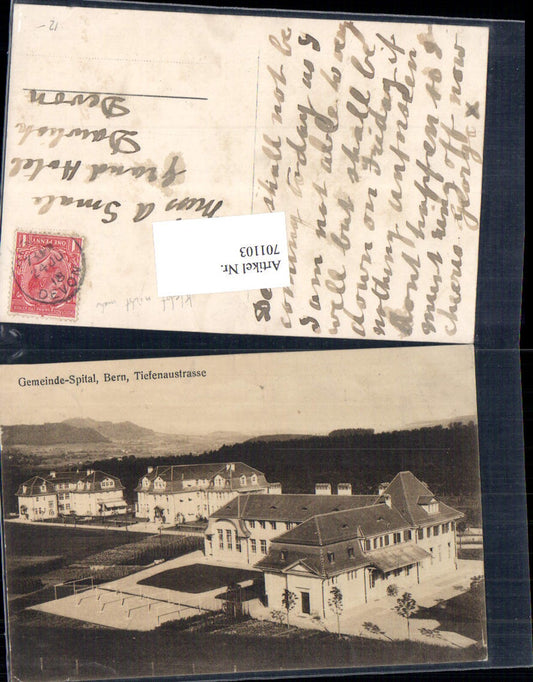 12 -
Miss A Smale
Grand Hotel
Dawlish
Devon
ONE PENNY
DEVON
shall not be
coming today as I
am not able to very
well but shall be
down on Friday if
nothing unforseen
dont happen to I
must ring off now
cheerio. George x
Artikel Nr.
701103
Gemeinde-Spital, Bern, Tiefenaustrasse